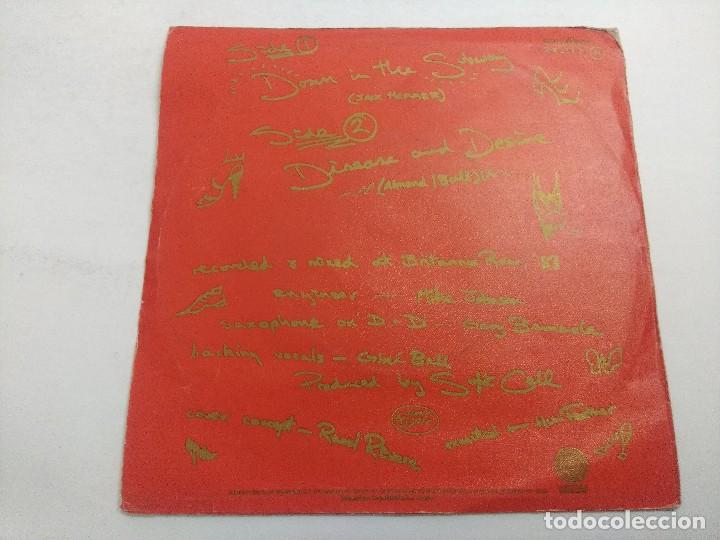 Side 1
Down in the Subway
(Jack Hammer)
Side 2
Disease and Desire
(Almond/Ball)
recorded & mixed at Britannia Row, 83
engineer — Mike Johnson
saxophone on D+D — Gary Barnacle
backing vocals — Ball
Produced by Soft Cell
cover concept — executed — Huw Feather
todocoleccion.net